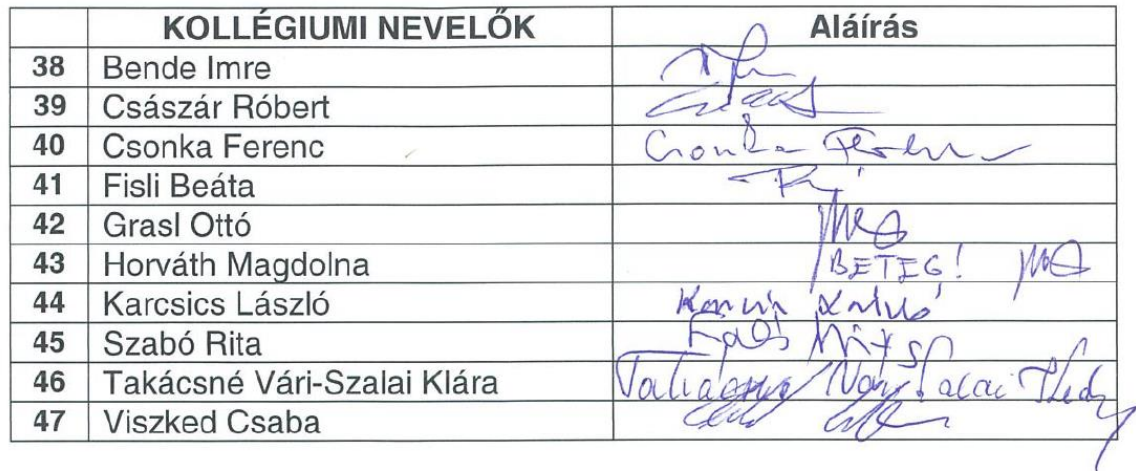 KOLLÉGIUMI NEVELŐK Aláírás
38 Bende Imre
39 Császár Róbert
40 Csonka Ferenc Csonka Ferenc
41 Fisli Beáta
42 Grasl Ottó
43 Horváth Magdolna BETEG!
44 Karcsics László
45 Szabó Rita
46 Takácsné Vári-Szalai Klára
47 Viszked Csaba